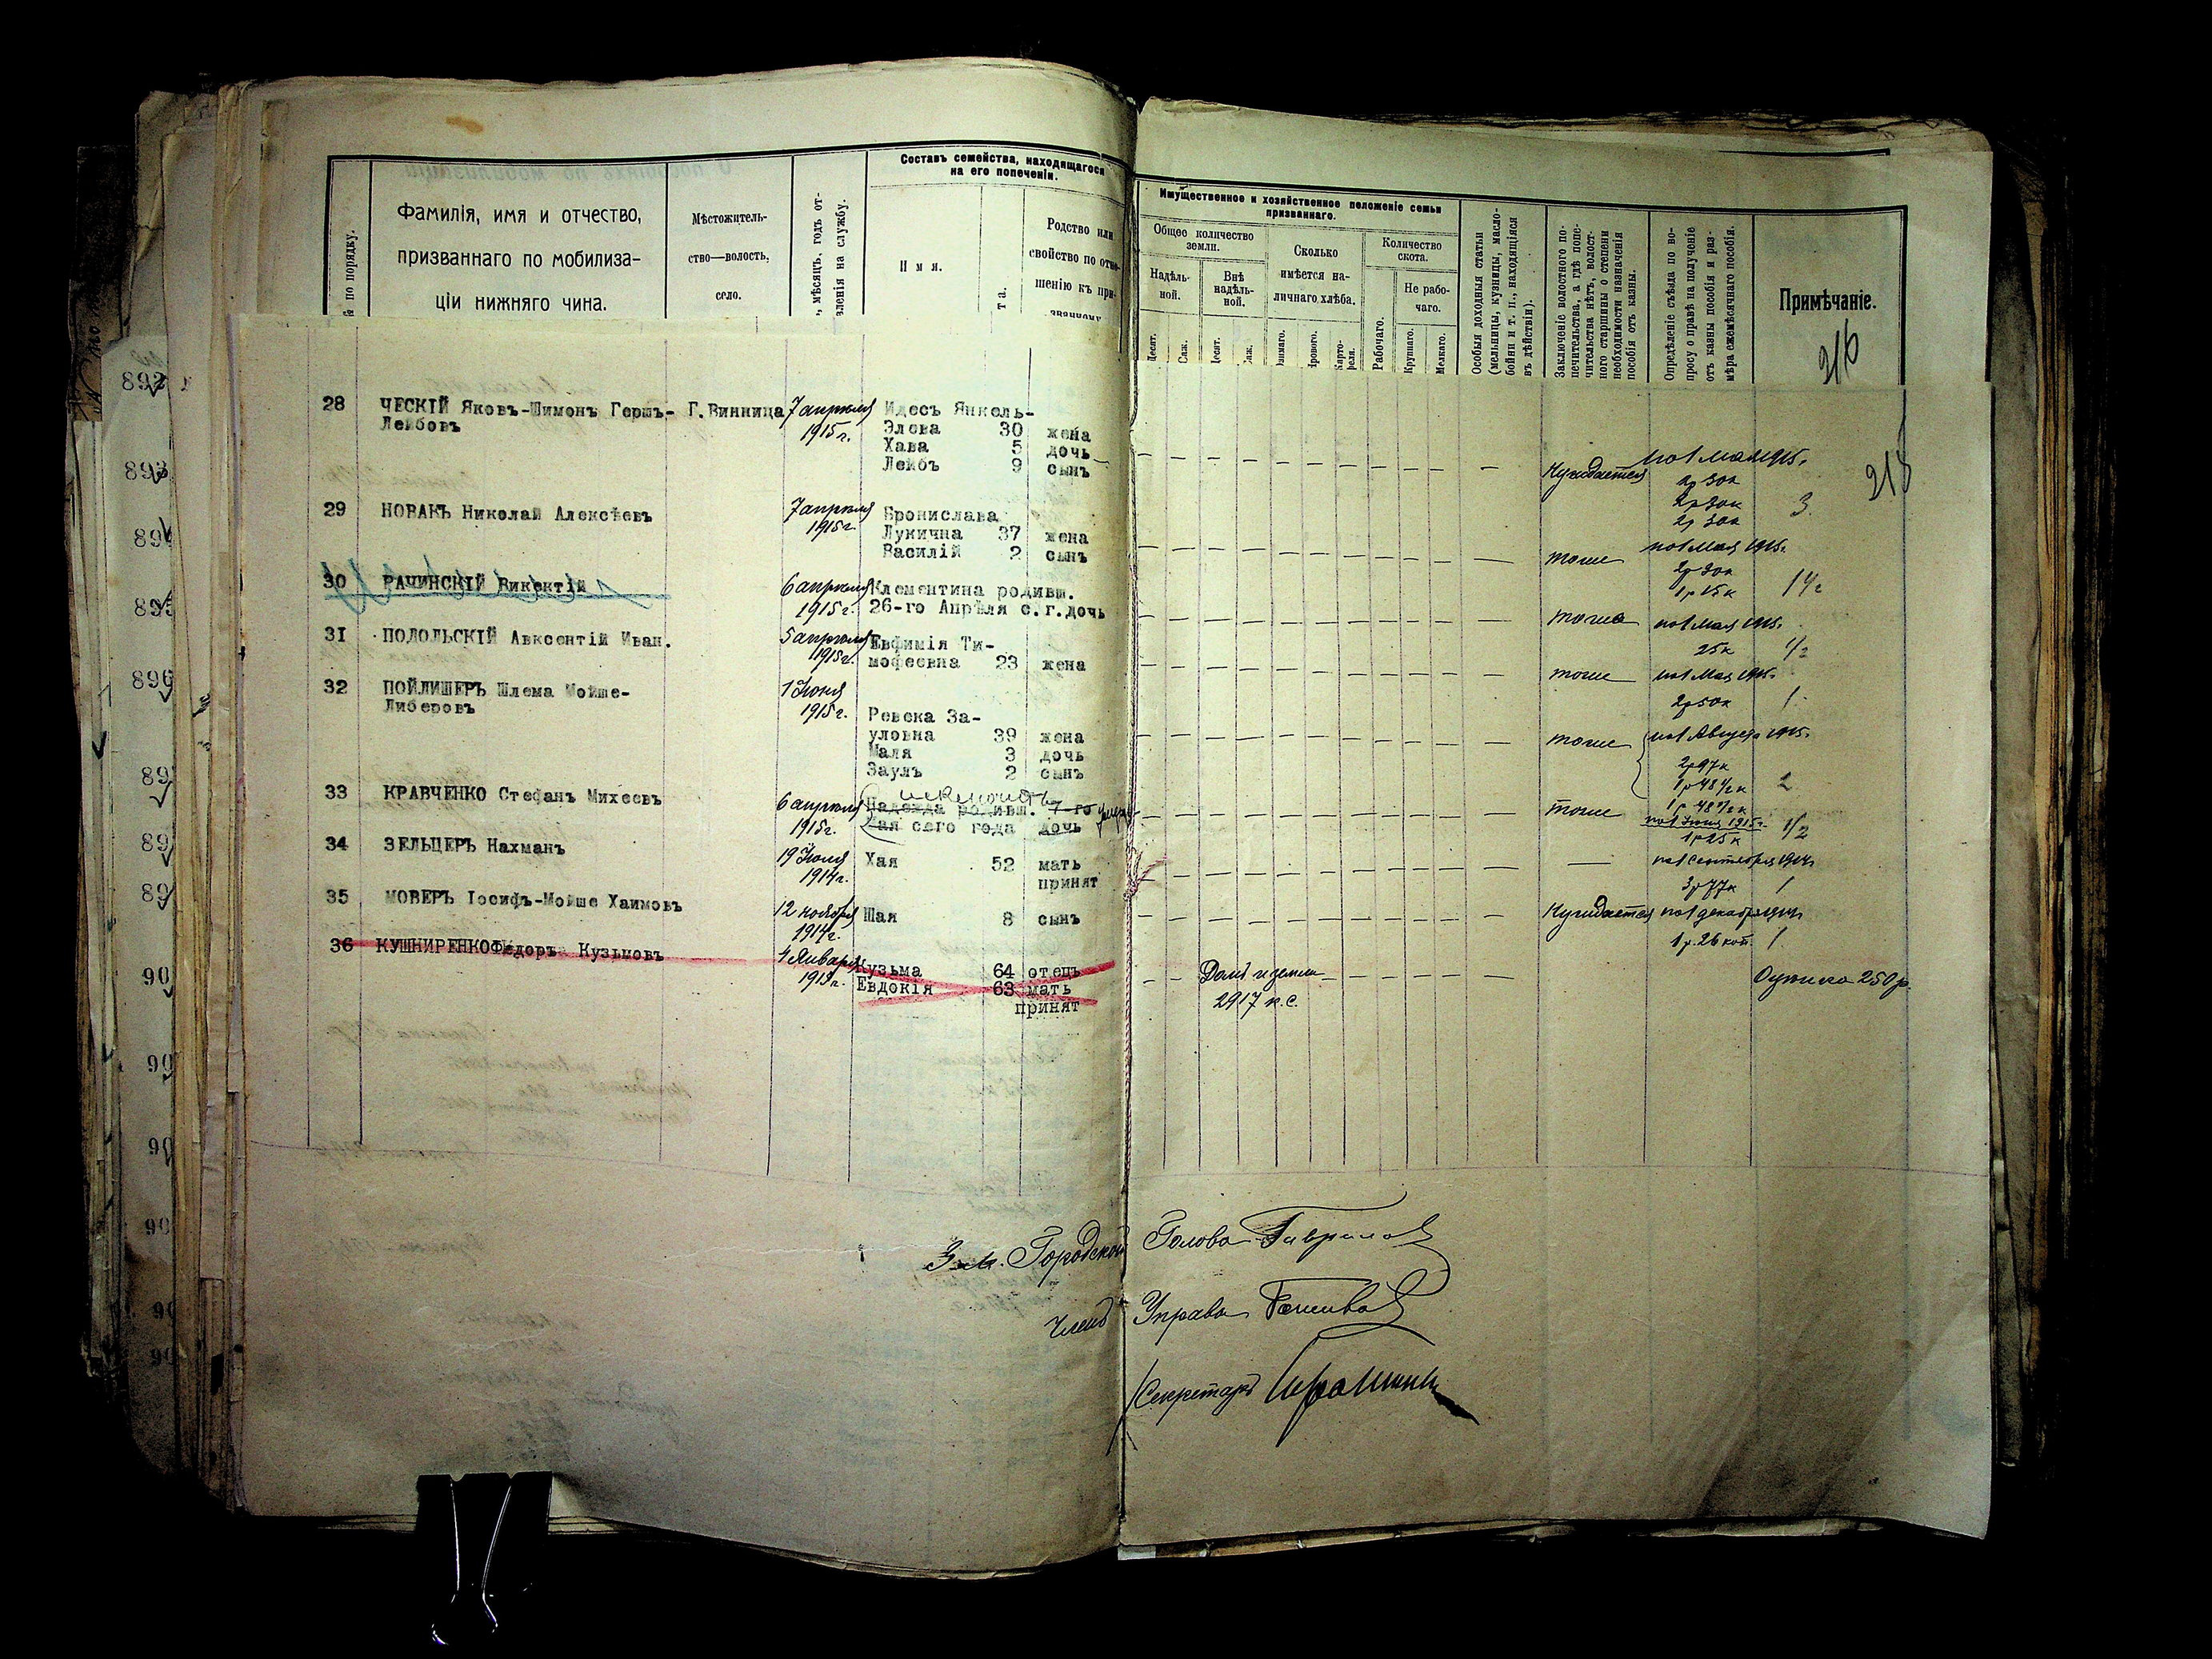 № по порядку.
Фамилія, имя и отчество,
призваннаго по мобилиза-
ціи нижняго чина.
Мѣстожитель-
ство—волость,
село.
мѣсяцъ, годъ от-
вленія на службу.
Составъ семейства, находящагося
на его попеченіи.
Имя.
Родство или
свойство по отно-
шенію къ при-
званному
Имущественное и хозяйственное положеніе семьи
призваннаго.
Общее количество
земли.
Надѣль-
ной.
Внѣ
надѣль-
ной.
Десят.
Саж.
Десят.
Саж.
Сколько
имѣется на-
личнаго хлѣба.
Озимаго.
Ярового.
Карто-
феля.
Количество
скота.
Рабочаго.
Не рабо-
чаго.
Крупнаго.
Мелкаго.
Особыя доходныя статьи
(мельницы, кузницы, масло-
бойни и т. п., находящіяся
въ дѣйствіи).
Заключеніе волостного по-
печительства, а гдѣ попе-
чительства нѣтъ, волост-
ного старшины о степени
необходимости назначенія
пособія отъ казны.
Опредѣленіе съѣзда по во-
просу о правѣ на полученіе
отъ казны пособія и раз-
мѣра ежемѣсячнаго пособія.
Примѣчаніе.
216
218
28 ЧЕСКІЙ Яковъ-Шимонъ Гершъ- Г.Винница 7 апрѣля Идесъ Янкель-
Лейбовъ 1915г. Элева 30 жена
Хава 5 дочь
Лейбъ 9 сынъ
Нуждается по 1 мая 1915г.
2р 30к
2р 30к 3
2р 30к
29 НОВАКЪ Николай Алексѣевъ 7 апрѣля Бронислава
1915г. Лукична 37 жена
Василій 2 сынъ
тоже по 1 Мая 1915г.
2р 30к
1р 15к 1½
30 РАЧИНСКІЙ Викентій 6 апрѣля Клементина родивш.
1915г. 26-го Апрѣля с.г. дочь
тоже по 1 Мая 1915г.
25к ½
31 ПОДОЛЬСКІЙ Авксентій Иван. 5 апрѣля Евфимія Ти-
1915г. мофеевна 23 жена
тоже по 1 Мая 1915г.
2р 50к 1
32 ПОЙЛИШЕРЪ Шлема Мойше- 1 Іюня
Либеровъ 1915г. Ревека За-
уловна 39 жена
Маля 3 дочь
Заулъ 2 сынъ
тоже по 1 Августа 1915г.
2р 97к
1р 48½к 2
1р 48½к
33 КРАВЧЕНКО Стефанъ Михеевъ 6 апрѣля Надежда родивш. 7-го
1915г. Мая сего года дочь
тоже по 1 Іюня 1915г. ½
1р 25к
34 ЗЕЛЬЦЕРЪ Нахманъ 19 Іюля Хая 52 мать
1914г. принят
по 1 Сентября 1914г
3р 77к 1
35 МОВЕРЪ Іосифъ-Мойше Хаимовъ 12 ноября Шая 8 сынъ
1914г.
Нуждается по 1 декабря 1914г
1р. 26 коп. 1
36 КУШНИРЕНКО Федоръ Кузьмовъ 4 Января Кузьма 64 отецъ
Евдокія 63 мать
принят
Домъ и земля
2917 к.с.
250р.
Городской Голова
Членъ Управы
Секретарь
892
893
896